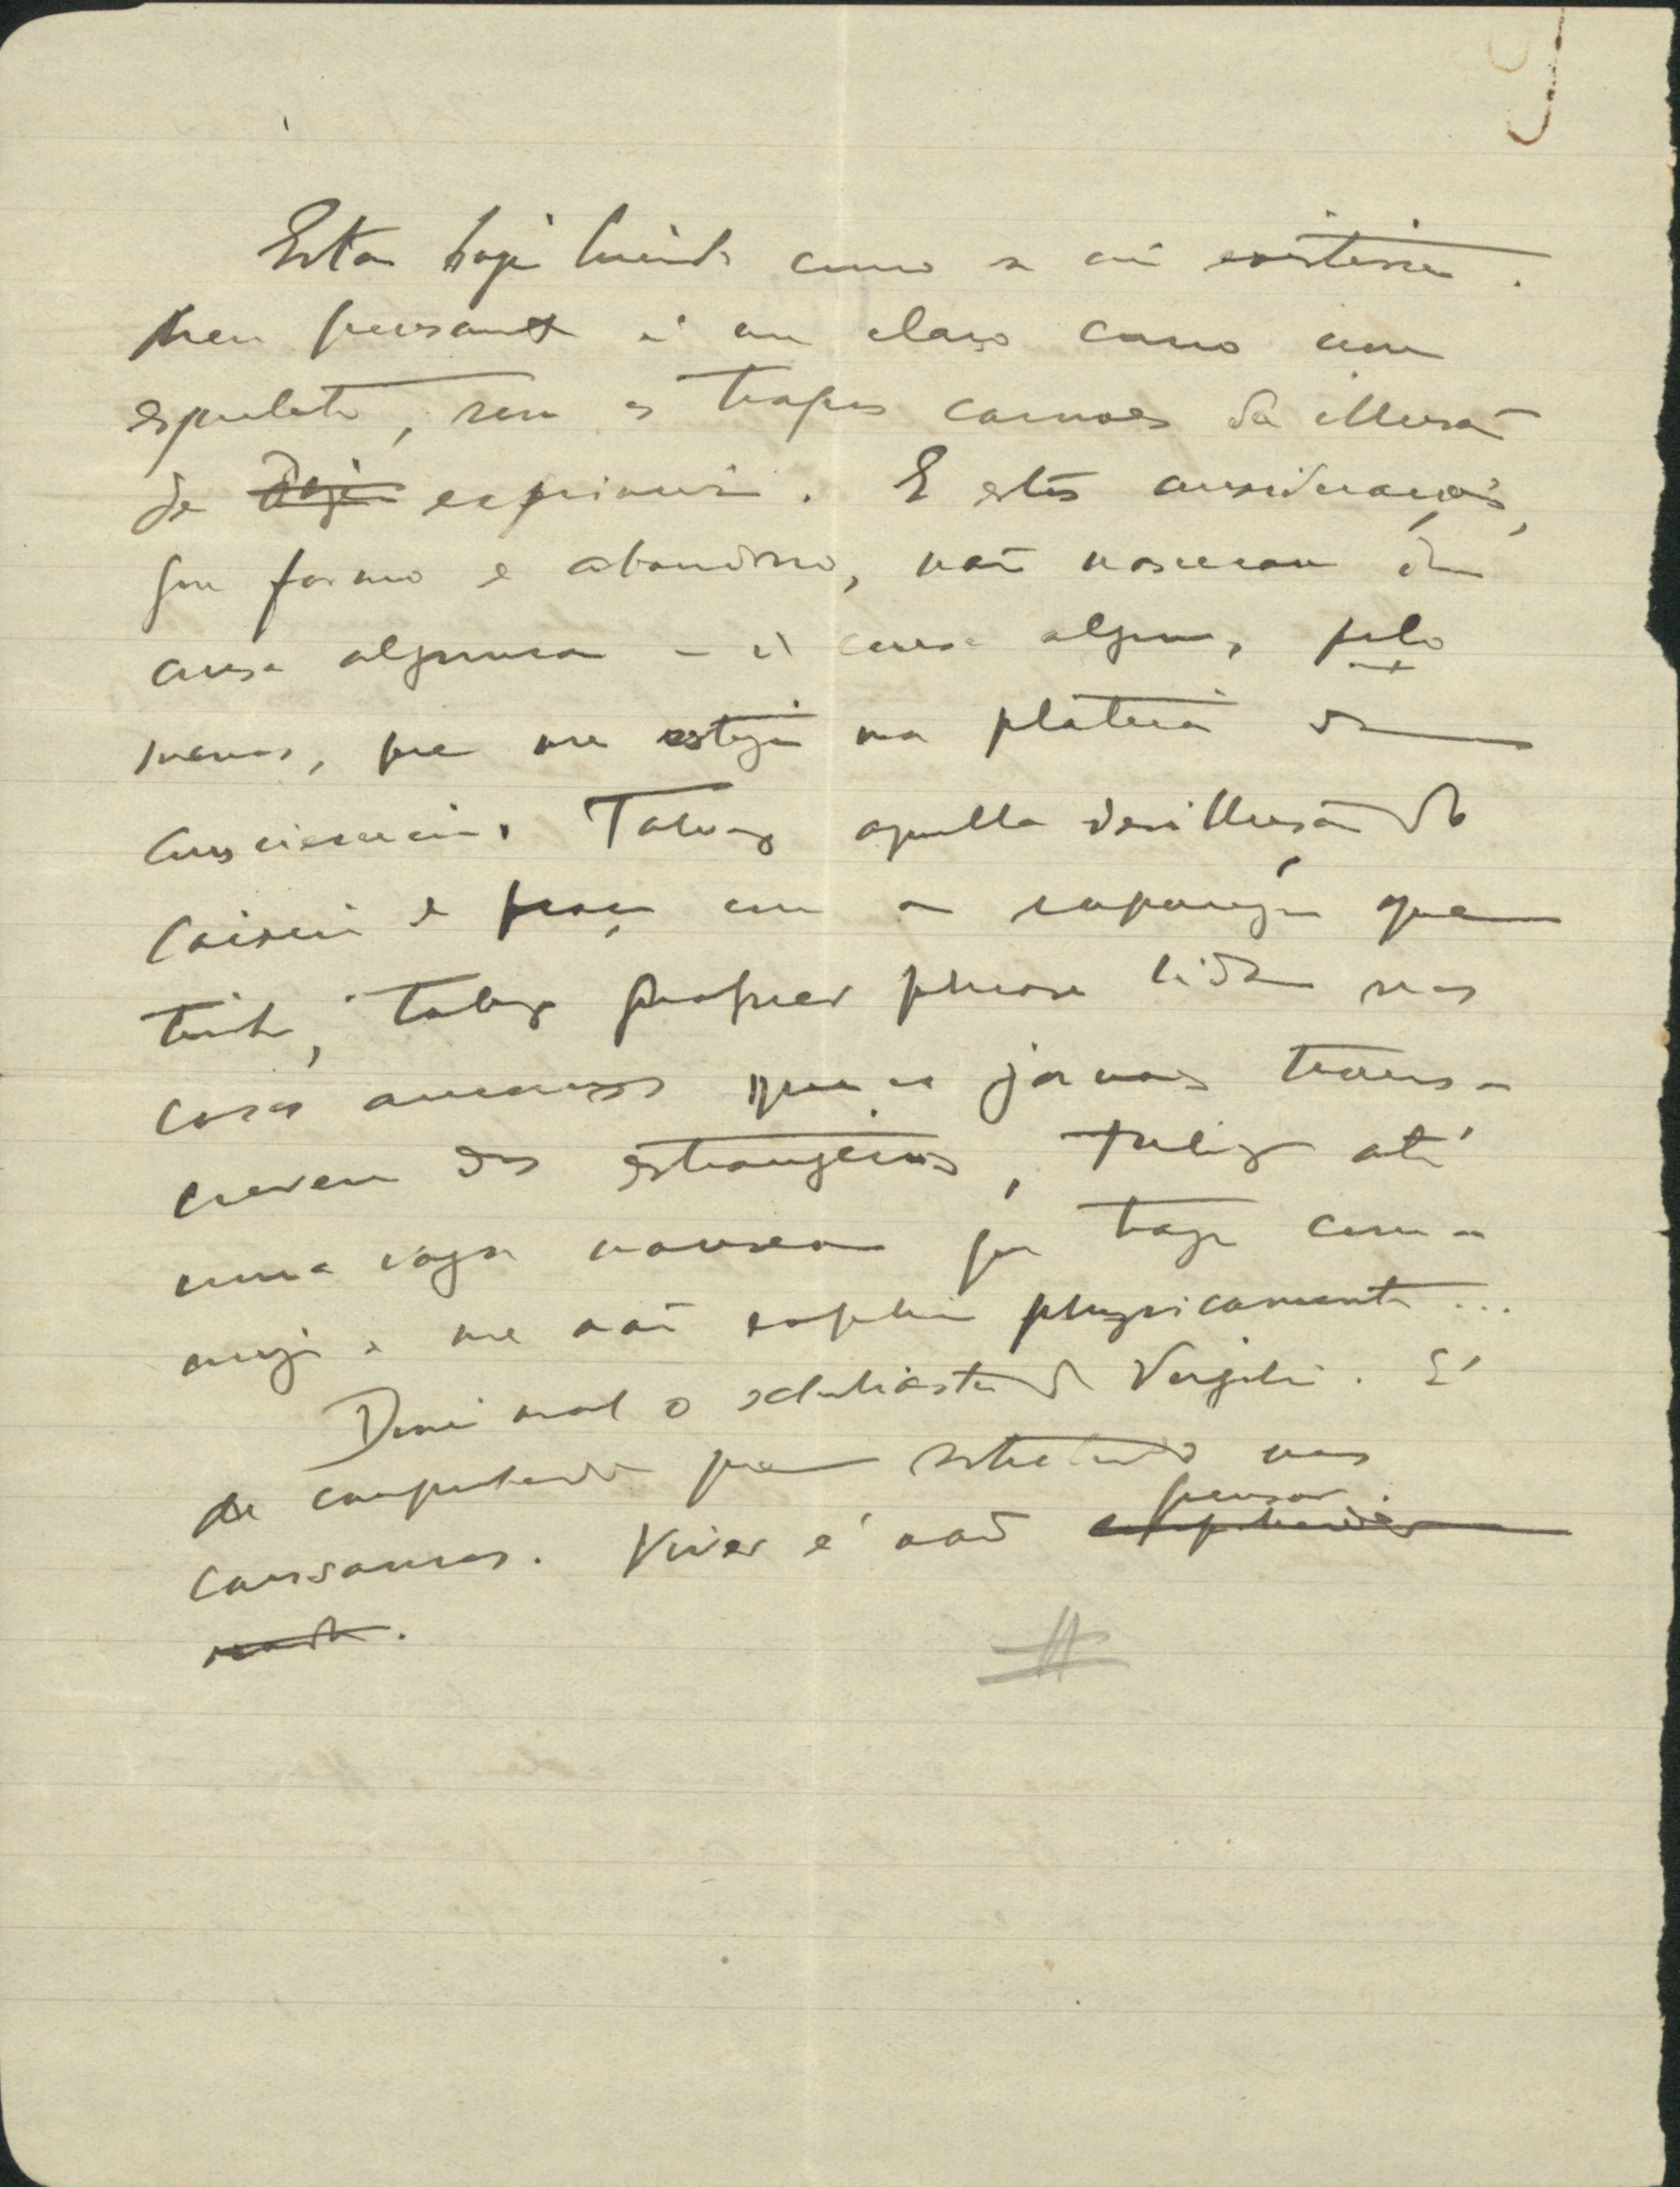 Estou hoje lucido como se não existisse.
Meu pensamento é em claro como um
esqueleto, sem os trapos carnaes da illusão
de exprimir. E estas considerações,
que formo e abandono, não nasceram de
cousa alguma – de cousa alguma, pelo
menos, que me esteja na plateia da
consciencia. Talvez aquella desillusão do
caixeiro de praça com a rapariga que
tinha, talvez qualquer phrase lida nos
casos amorosos que os jornaes trans-
crevem dos estrangeiros, talvez até
uma vaga nausea que trago com-
migo e me não expeli physicamente...
Disse mal o scholiasta de Vergilio. É
de comprehender que sobretudo nos
pensar.
cansamos. Viver é não comprehender